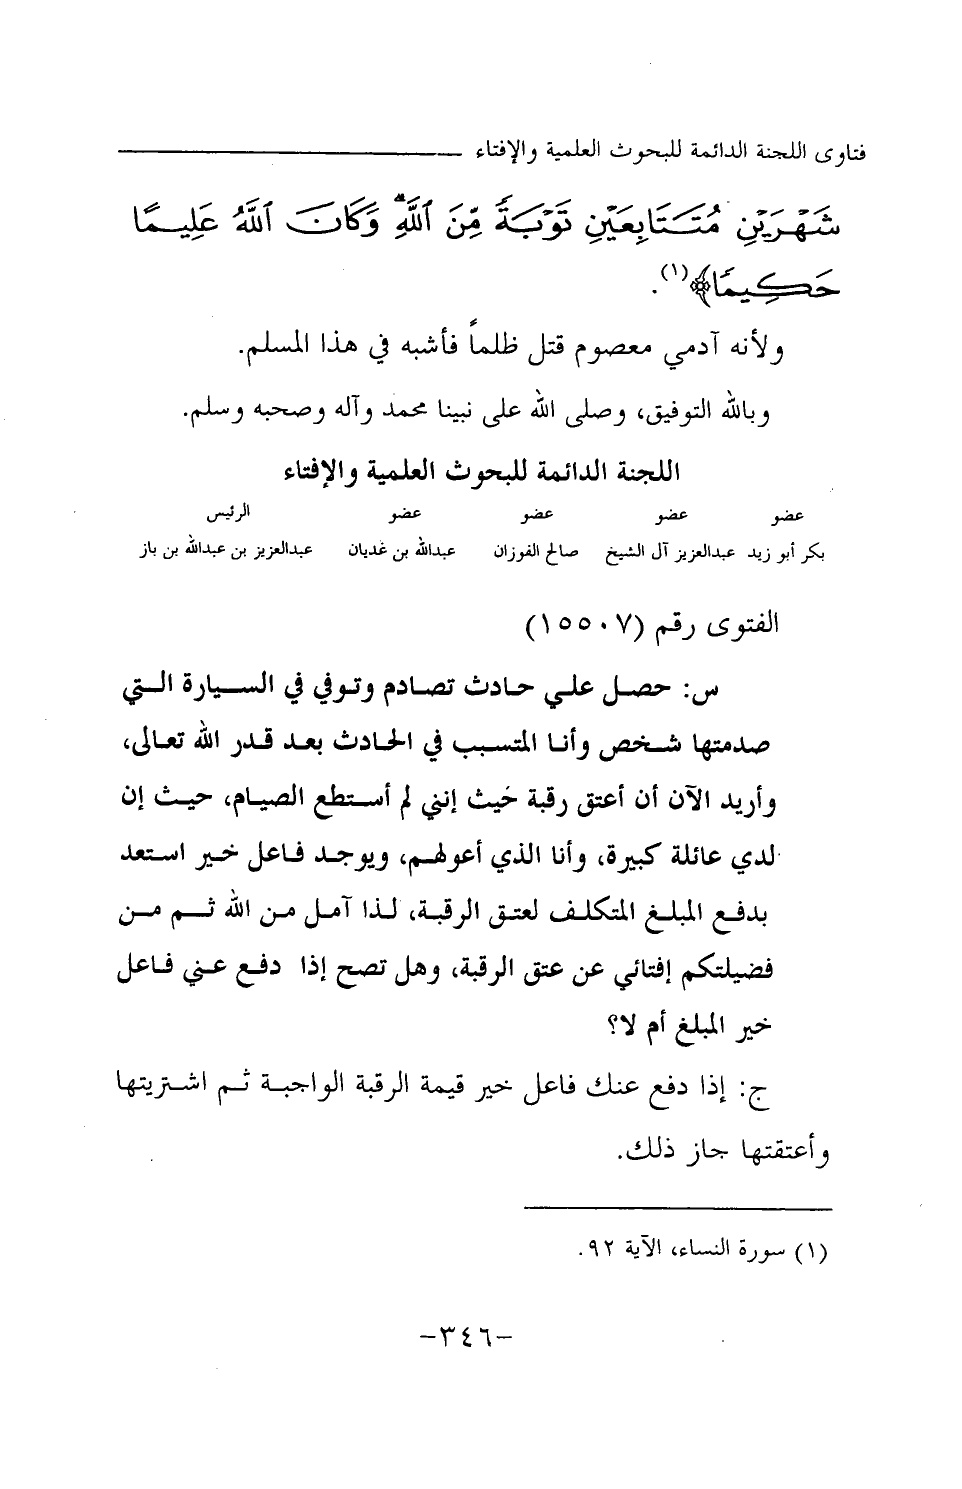 فتاوى اللجنة الدائمة للبحوث العلمية والإفتاء
شَهْرَيْنِ مُتَتَابِعَيْنِ تَوْبَةً مِّنَ ٱللَّهِ ۗ وَكَانَ ٱللَّهُ عَلِيمًا
حَكِيمًا﴾(١).
ولأنه آدمي معصوم قتل ظلماً فأشبه في هذا المسلم.
وبالله التوفيق، وصلى الله على نبينا محمد وآله وصحبه وسلم.
اللجنة الدائمة للبحوث العلمية والإفتاء
عضو عضو عضو عضو الرئيس
بكر أبو زيد عبدالعزيز آل الشيخ صالح الفوزان عبدالله بن غديان عبدالعزيز بن عبدالله بن باز
الفتوى رقم (١٥٥٠٧)
س: حصل علي حادث تصادم وتوفي في السيارة التي
صدمتها شخص وأنا المتسبب في الحادث بعد قدر الله تعالى،
وأريد الآن أن أعتق رقبة حيث إنني لم أستطع الصيام، حيث إن
لدي عائلة كبيرة، وأنا الذي أعولهم، ويوجد فاعل خير استعد
بدفع المبلغ المتكلف لعتق الرقبة، لذا آمل من الله ثم من
فضيلتكم إفتائي عن عتق الرقبة، وهل تصح إذا دفع عني فاعل
خير المبلغ أم لا؟
ج: إذا دفع عنك فاعل خير قيمة الرقبة الواجبة ثم اشتريتها
وأعتقتها جاز ذلك.
(١) سورة النساء، الآية ٩٢.
-٣٤٦-